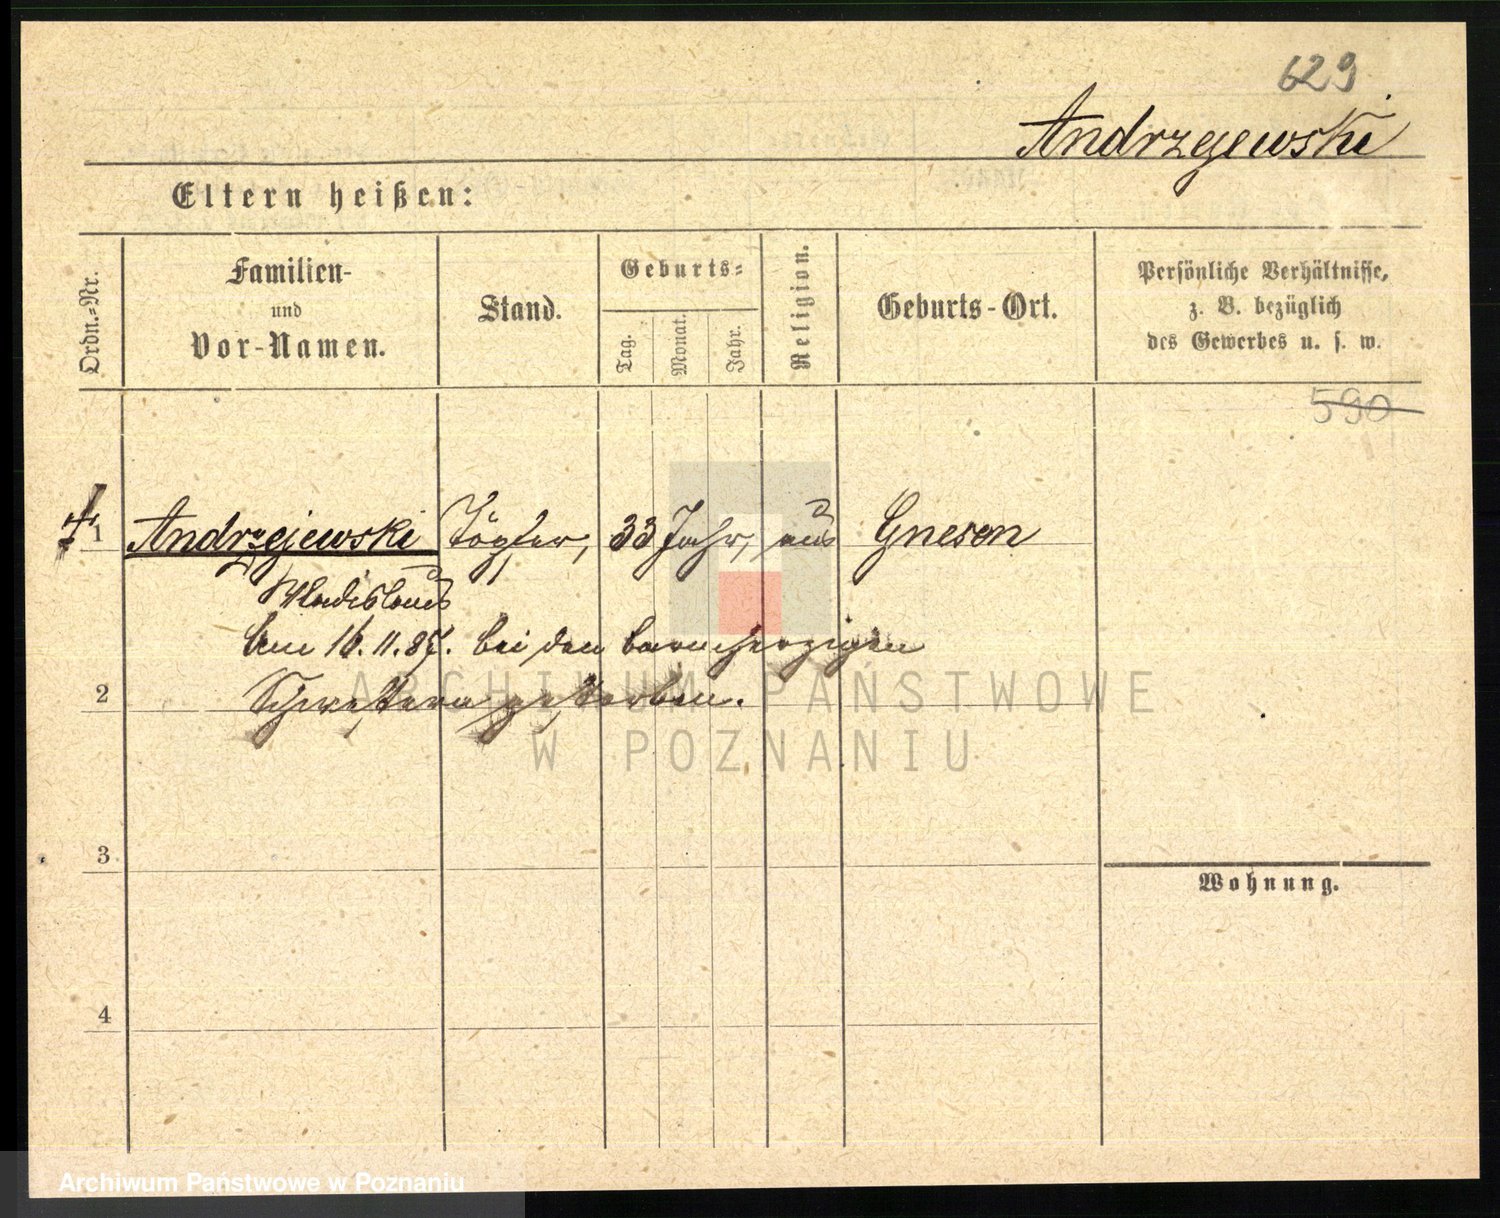 629
Andrzejewski
Eltern heißen:
Ordn.-Nr.
Familien-
und
Vor-Namen.
Stand.
Geburts-
Tag.
Monat.
Jahr.
Religion.
Geburts-Ort.
Persönliche Verhältnisse,
z. B. bezüglich
des Gewerbes u. s. w.
590
1 Andrzejewski Töpfer, 33 Jahr, aus Gnesen
Wladislaus
Am 16.11.87. bei den barmherzigen
2 Schwestern gestorben.
ARCHIWUM PAŃSTWOWE
W POZNANIU
3
Wohnung.
4
Archiwum Państwowe w Poznaniu